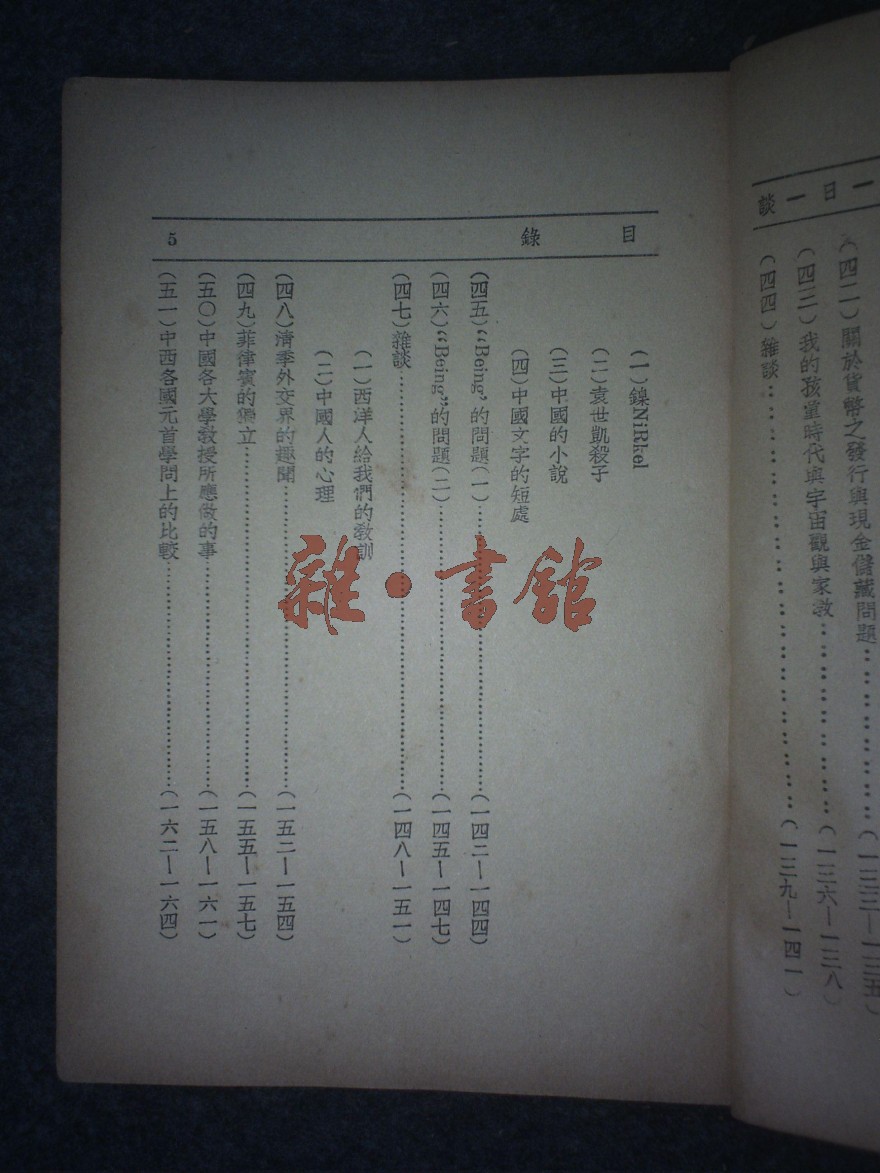 談一日一
（四二）關於貨幣之發行與現金儲藏問題……（一三三—一三五）
（四三）我的孩童時代與宇宙觀與家教……（一三六—一三八）
（四四）雜談……（一三九—一四一）
目錄 5
（一）鎳NiRkel
（二）袁世凱殺子
（三）中國的小說
（四）中國文字的短處
（四五）“Being”的問題（一）……（一四二—一四四）
（四六）“Being”的問題（二）……（一四五—一四七）
（四七）雜談……（一四八—一五一）
（一）西洋人給我們的教訓
（二）中國人的心理
（四八）清季外交界的趣聞……（一五二—一五四）
（四九）菲律賓的獨立……（一五五—一五七）
（五〇）中國各大學教授所應做的事……（一五八—一六一）
（五一）中西各國元首學問上的比較……（一六二—一六四）
雜·書館